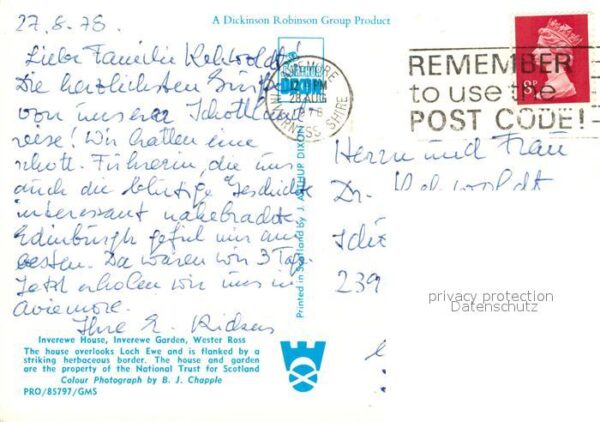 27.8.78
A Dickinson Robinson Group Product
Liebe Familie
Die herzlichsten Grüße
von unserer Schottland
reise! Wir hatten eine
schott. Führerin, die uns
auch die blutige Geschichte
interessant nahebrachte.
Edinburgh gefiel mir am
besten. Da waren wir 3 Tage.
Jetzt erholen wir uns in
Aviemore.
Ihre E.
AVIEMORE
PM
28 AUG
1978
INVERNESS SHIRE
REMEMBER
to use the
POST CODE!
Printed in Scotland by J. ARTHUR DIXON
Herrn und Frau
Dr.
239
privacy protection
Datenschutz
Inverewe House, Inverewe Garden, Wester Ross
The house overlooks Loch Ewe and is flanked by a
striking herbaceous border. The house and garden
are the property of the National Trust for Scotland
Colour Photograph by B. J. Chapple
PRO/85797/GMS